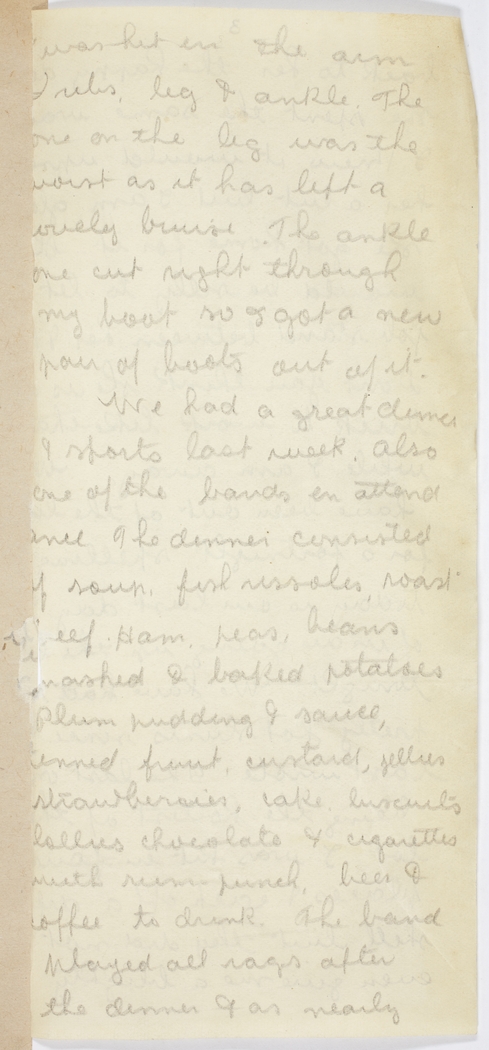 3
was hit in the arm
ribs, leg & ankle. The
one on the leg was the
worst as it has left a
lovely bruise. The ankle
one cut right through
my boot so I got a new
pair of boots out of it.
We had a great dinner
& sports last week, also
one of the bands in attend
ance The dinner consisted
of soup, fish rissoles, roast
Beef. Ham, peas, beans
mashed & baked potatoes
Plum pudding & sauce,
tinned fruit, custard, jellies
strawberries, cake, biscuits
lollies chocolate & cigarettes
with rum punch, beer &
coffee to drink. The band
played all rags after
the dinner & as nearly